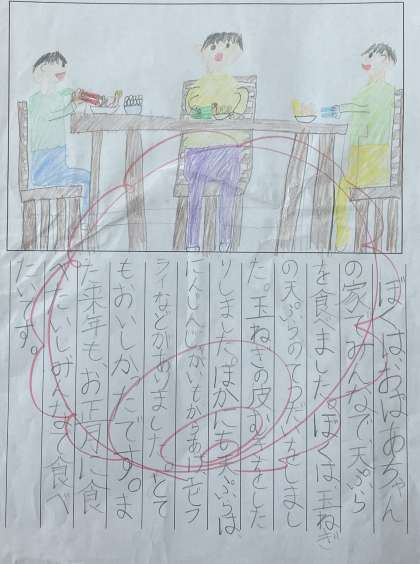 ぼくは、おばあちゃん
の家でみんなで、天ぷら
を食べました。ぼくは玉ねぎ
の天ぷらのてつだいをしまし
た。玉ねぎの皮むきをした
りしました。ほかにも天ぷらは、
にんじん
ライなどがありました。とて
もおいしかたです。ま
た来年も、お正月に食
べたいしみんなで食べ
たいです。